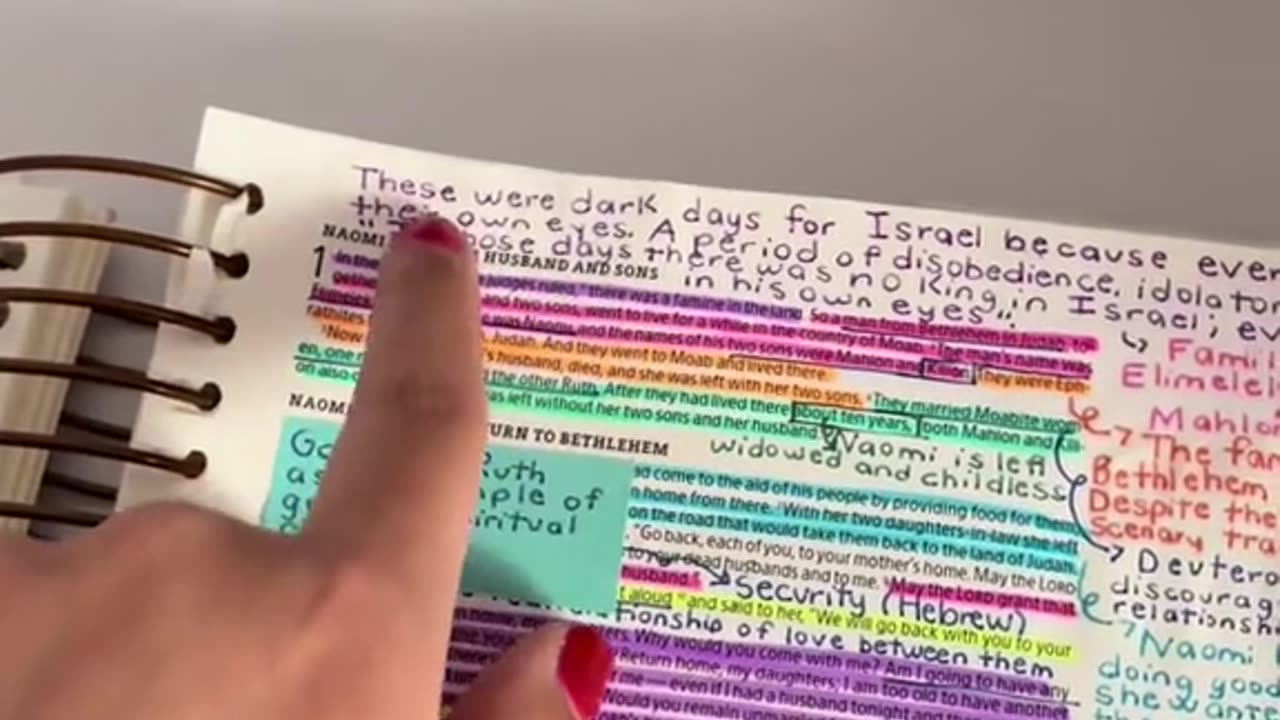 These were dark days for Israel because ever
their own eyes. A period of disobedience, idolator
those days there was no king in Israel; ev
in his own eyes".
NAOMI HUSBAND AND SONS
1 In the judges ruled, there was a famine in the land. So a man from Bethlehem in Judah, to-
and two sons, went to live for a while in the country of Moab. The man's name was
was Naomi, and the names of his two sons were Mahlon and Kilion. They were Eph-
rathites Judah. And they went to Moab and lived there.
Now 's husband, died, and she was left with her two sons. They married Moabite wom-
en, one the other Ruth. After they had lived there about ten years, both Mahlon and Kil-
ion also was left without her two sons and her husband.
Naomi is left
widowed and childless
NAOMI TURN TO BETHLEHEM
Ruth
as ple of
iritual
had come to the aid of his people by providing food for them,
home from there. With her two daughters-in-law she left
on the road that would take them back to the land of Judah.
"Go back, each of you, to your mother's home. May the LORD
to your dead husbands and to me. May the LORD grant that
husband."
Security (Hebrew)
aloud and said to her, "We will go back with you to your
tionship of love between them
Why would you come with me? Am I going to have any
Return home, my daughters; I am too old to have another
me—even if I had a husband tonight and then
Would you remain unmarried
Famil
Elimelel
Mahlon
The fam
Bethlehem
Despite the
Scenary tra
Deutero
discourag
relationshi
Naomi
doing good
she wante